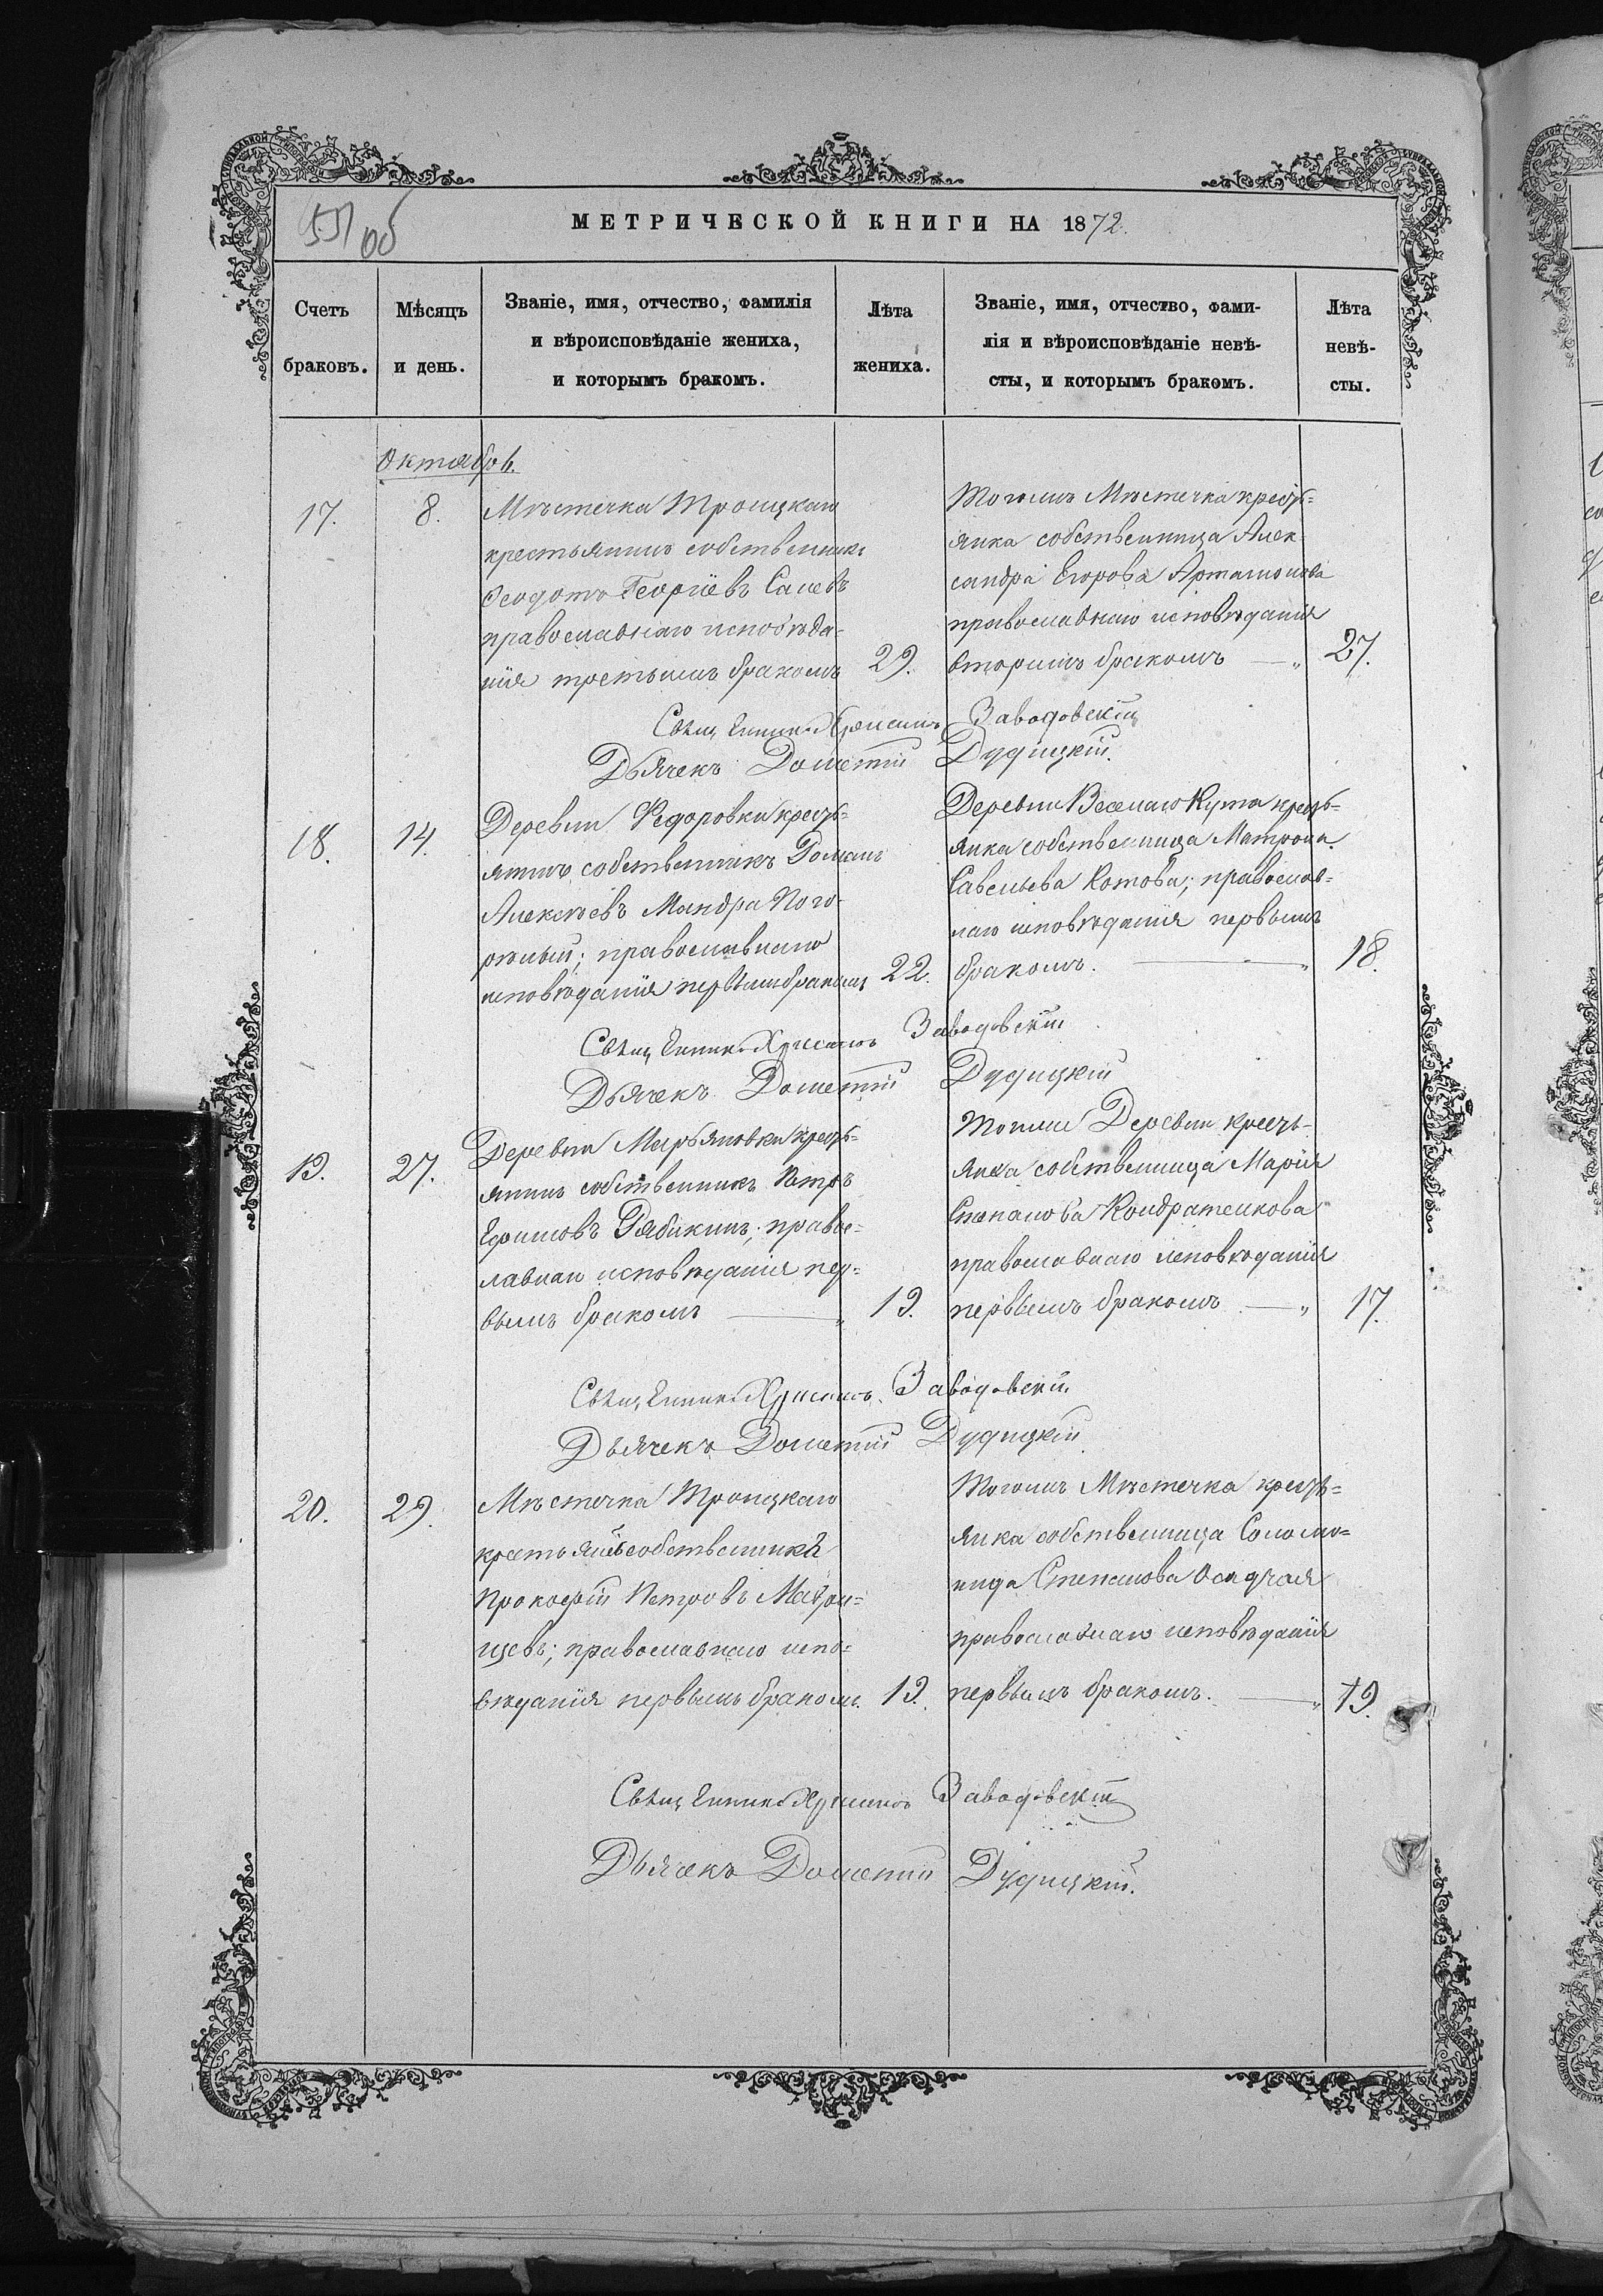 МЕТРИЧЕСКОЙ КНИГИ НА 1872.
Счетъ браковъ.
Мѣсяцъ и день.
Званіе, имя, отчество, фамилія
и вѣроисповѣданіе жениха,
и которымъ бракомъ.
Лѣта жениха.
Званіе, имя, отчество, фами-
лія и вѣроисповѣданіе невѣ-
сты, и которымъ бракомъ.
Лѣта невѣ-
сты.
Октябрь.
17.
8.
Мѣстечка Троицкаго
крестьянинъ собственникъ
Ѳеодотъ Георгіевъ
православнаго исповѣда-
нія третьимъ бракомъ
29.
Тогожъ Мѣстечка кресть-
янка собственница Алек
сандра Егорова Артамонова
православнаго исповѣданія
вторымъ бракомъ
27.
Свящ Заводовскій
Дьячекъ Дометій Дудицкій.
18.
14.
Деревни Федоровки кресть-
янинъ собственникъ Романъ
Алексѣевъ Мандра Пого-
рѣлый; православнаго
исповѣданія первымъ бракомъ
22.
Деревни Веселаго Кута кресть-
янка собственница Матрона
Савельева Котова; православ-
наго исповѣданія первымъ
бракомъ.
18.
Свящ Заводовскій
Дьячекъ Дометій Дудицкій
19.
27.
Деревни Марьяновки кресть-
янинъ собственникъ Петръ
Ефимовъ Рябикинъ; право-
славнаго исповѣданія пер-
вымъ бракомъ
19.
Тойже Деревни кресть-
янка собственница Марія
Степанова Кондратенкова
православнаго исповѣданія
первымъ бракомъ
17.
Свящ Заводовскій
Дьячекъ Дометій Дудицкій
20.
29.
Мѣстечка Троицкаго
собственника
Прокофій Петровъ
православнаго испо-
вѣданія первымъ бракомъ.
19.
Тогожъ Мѣстечка кресть-
янка собственница Соломо-
нида Степанова Осадчая
православнаго исповѣданія
первымъ бракомъ.
19.
Свящ Заводовскій
Дьячекъ Дометій Дудицкій.